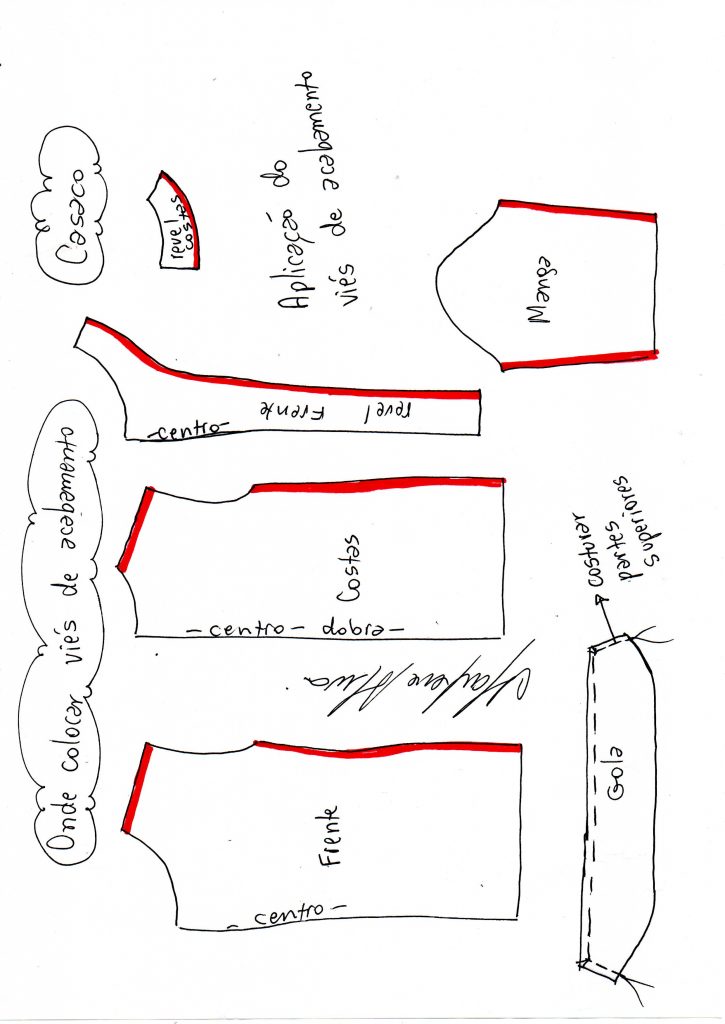 Onde colocar viés de acabamento
Casaco
Frente
- centro -
Costas
- centro - dobra -
Marlene Mukai
revel Frente
- centro -
revel
costas
Aplicação do
viés de acabamento
Manga
Gola
costurar
partes
superiores